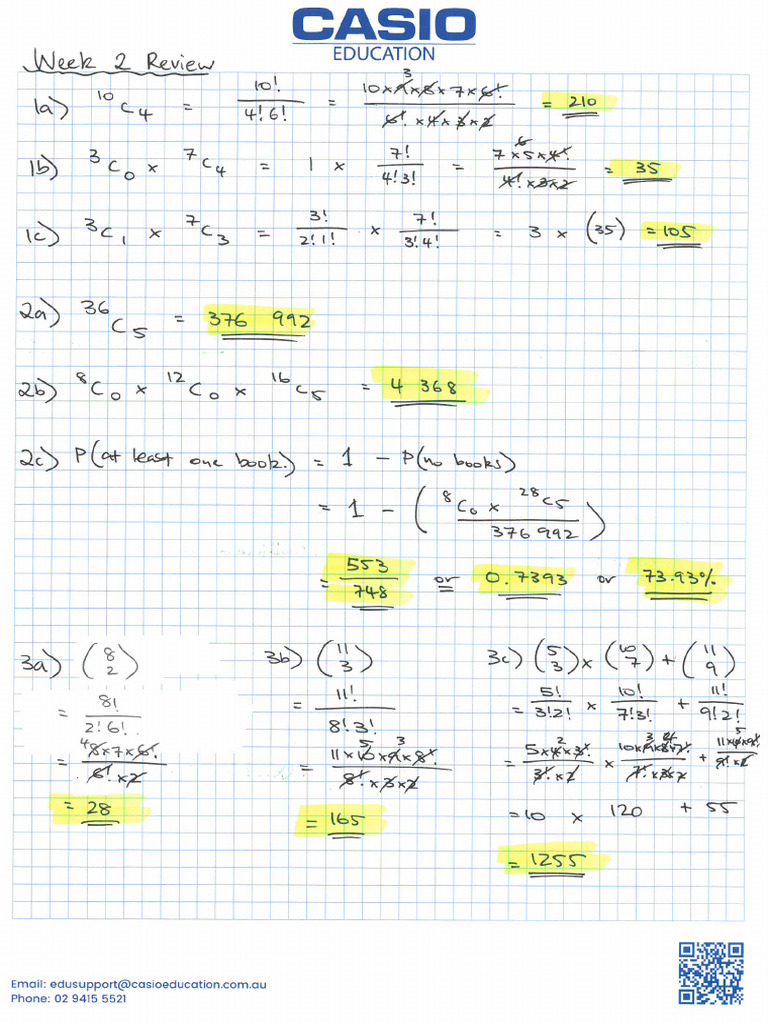 CASIO
EDUCATION
Week 2 Review
1a) ¹⁰C₄ = 10! / 4! 6! = 10 × 9 × 8 × 7 × 6! / 6! × 4 × 3 × 2 = 210
1b) ³C₀ × ⁷C₄ = 1 × 7! / 4! 3! = 7 × 5 × 4! / 4! × 3 × 2 = 35
1c) ³C₁ × ⁷C₃ = 3! / 2! 1! × 7! / 3! 4! = 3 × (35) = 105
2a) ³⁶C₅ = 376 992
2b) ⁸C₀ × ¹²C₀ × ¹⁶C₅ = 4 368
2c) P(at least one book) = 1 - P(no books)
= 1 - (⁸C₀ × ²⁸C₅ / 376 992)
= 553 / 748 or 0.7393 or 73.93%
3a) (8 2) 3b) (11 3) 3c) (5 3) × (10 7) + (11 9)
= 8! / 2! 6! = 11! / 8! 3! = 5! / 3! 2! × 10! / 7! 3! + 11! / 9! 2!
= 8 × 7 × 6! / 6! × 2 = 11 × 10 × 9 × 8! / 8! × 3 × 2 = 5 × 4 × 3! / 3! × 2 × 10 × 9 × 8 × 7! / 7! × 3 × 2 + 11 × 10 × 9! / 9! × 2
= 28 = 165 = 10 × 120 + 55
= 1255
Email: edusupport@casioeducation.com.au
Phone: 02 9415 5521